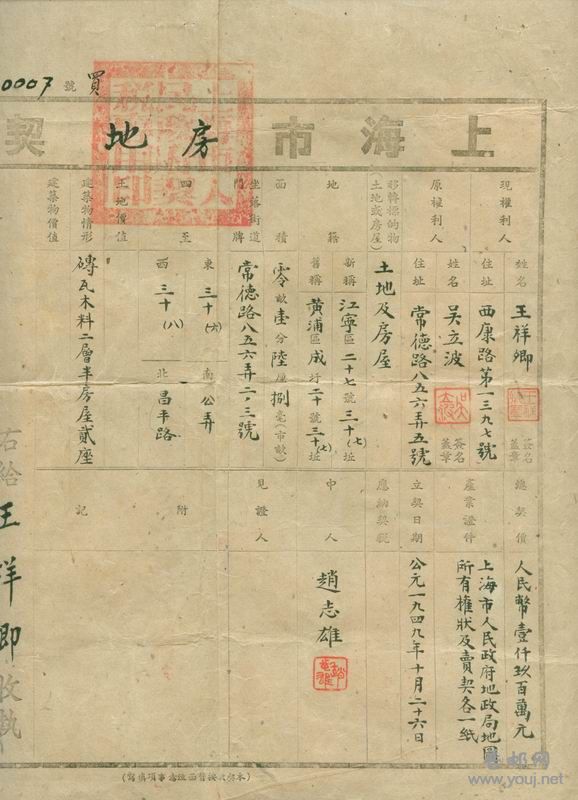 0007 號 買
上海市房地契
現權利人
姓名 王祥卿 簽名蓋章
住址 西康路第一三九七號
原權利人
姓名 吴立波 簽名蓋章
住址 常德路八五六弄五號
移轉標的物(土地或房屋)
土地及房屋
地籍
新稱 江寧區二十七號三十(七)坵
舊稱 黄浦區成圩二十號三十(七)坵
面積
零畝壹分陸厘捌毫(市畝)
坐落街道門牌
常德路八五六弄二,三號
四至
東 三十(六) 南 公弄
西 三十(八) 北 昌平路
土地價值
建築物情形
磚瓦木料二層半房屋貳座
建築物價值
總契價
人民幣壹仟玖百萬元
產業證件
上海市人民政府地政局地圖
所有權狀及賣契各一紙
立契日期
公元一九四九年十月二十六日
應納契稅
中人
趙志雄
見證人
附記
右給王祥卿收執
www.youj.net